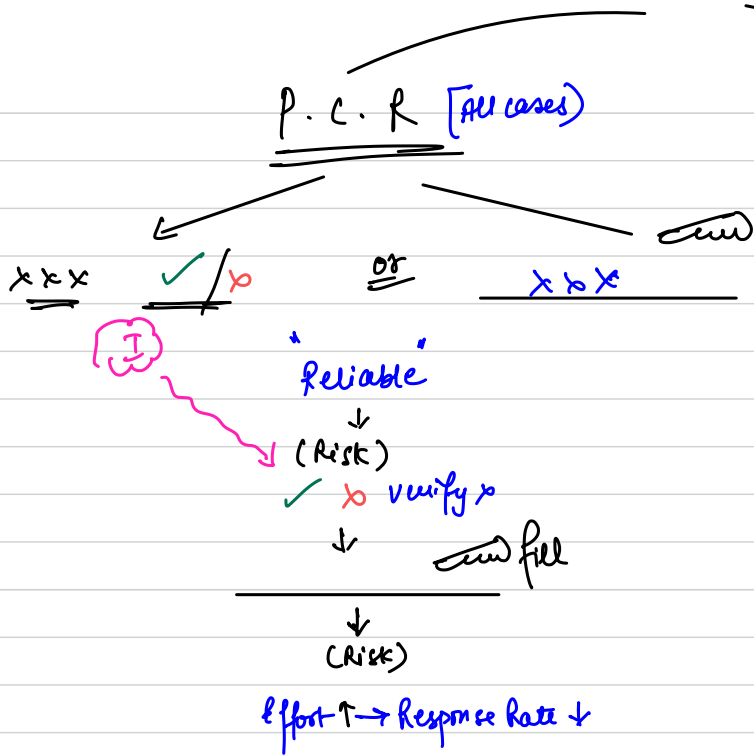 P.C.R [All cases)
x x x ✓/x or x x x
I
"Reliable"
↓
(Risk)
✓ x verify x
↓
fill
↓
(Risk)
Effort ↑ → Response Rate ↓